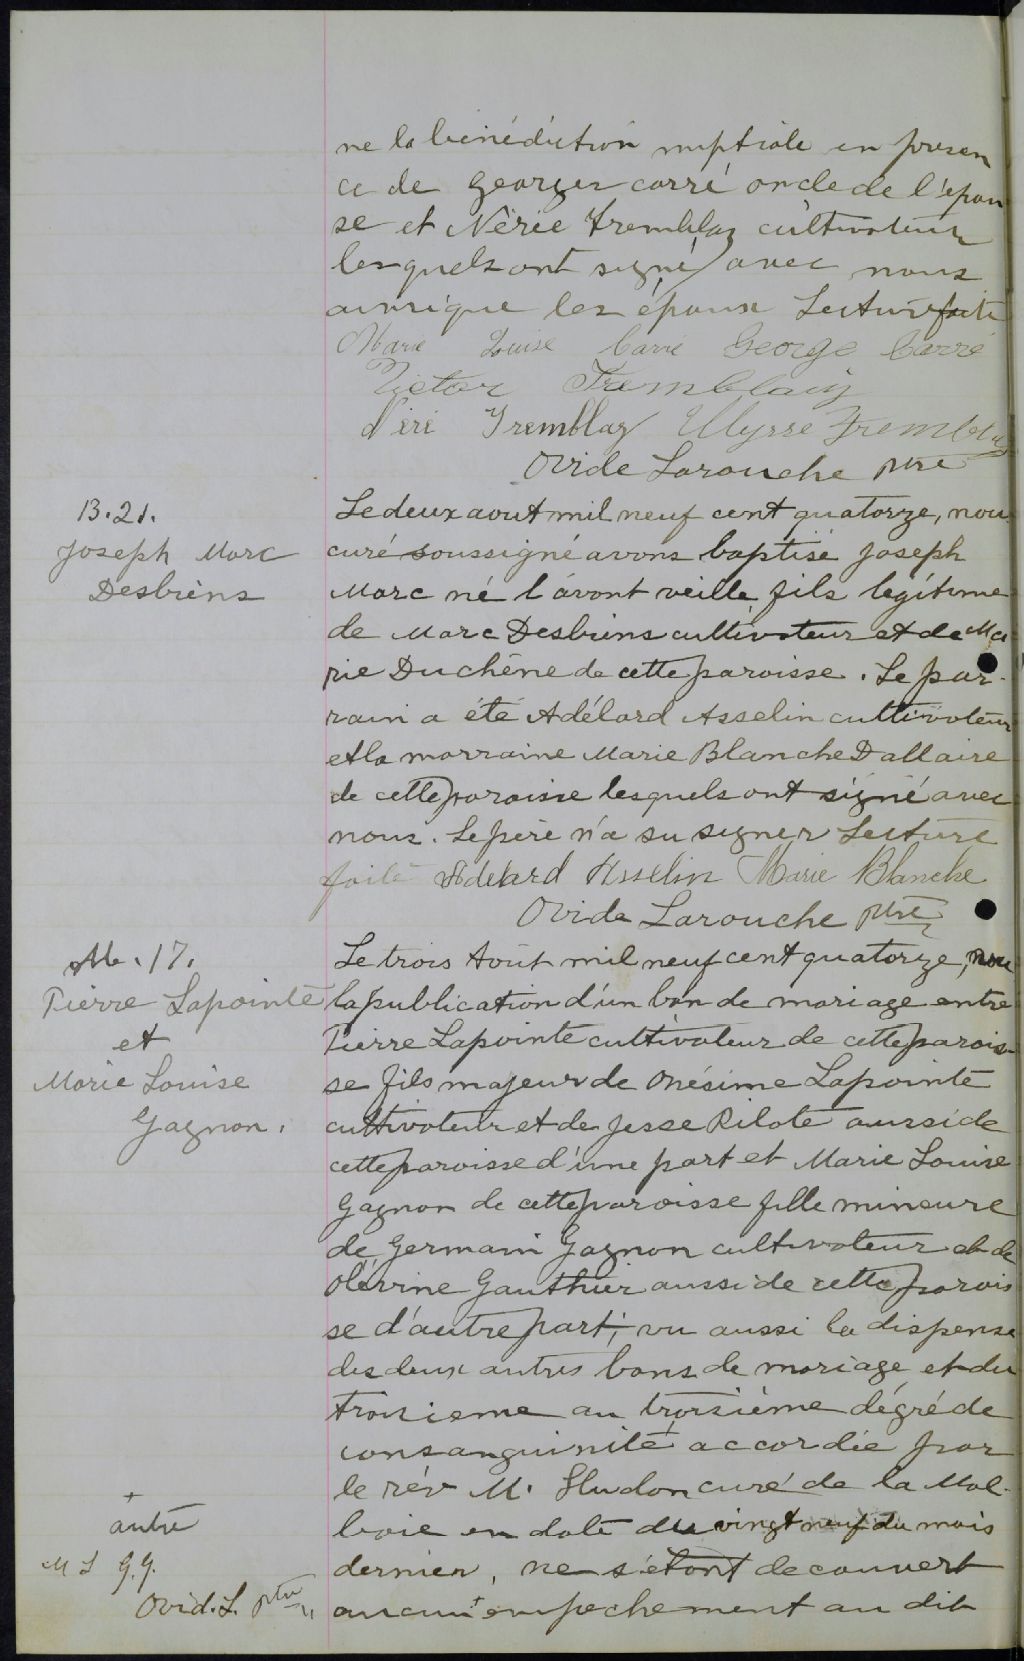 ne la bénédiction nuptiale en présen
ce de Georges carré oncle de l'épou
se et Nérée Tremblay cultivateur
lesquels ont signé avec nous
ainsi que les époux Lecture faite
Marie Louise Carré George Carré
Victor Tremblay
Néré Tremblay Ulysse Tremblay
Ovide Larouche ptre
B. 21.
Joseph Marc
Desbiens
Le deux aout mil neuf cent quatorze, nou
curé soussigné avons baptisé Joseph
Marc né l'avant veille, fils légitime
de Marc Desbiens cultivateur et de Ma
rie Duchêne de cette paroisse. Le par-
rain a été Adélard Asselin cultivateur
et la marraine Marie Blanche Dallaire
de cette paroisse lesquels ont signé avec
nous. Le père n'a su signer Lecture
faite Adélard Asselin Marie Blanche
Ovide Larouche ptre
M. 17.
Pierre Lapointe
et
Marie Louise
Gagnon.
Le trois Août mil neuf cent quatorze, nou
la publication d'un ban de mariage entre
Pierre Lapointe cultivateur de cette parois-
se fils majeur de Onésime Lapointe
cultivateur et de Jesse Pilote aussi de
cette paroisse d'une part et Marie Louise
Gagnon de cette paroisse fille mineure
de Germain Gagnon cultivateur et de
Olévine Gauthier aussi de cette parois
se d'autre part; vu aussi la dispense
des deux autres bans de mariage et du
troisieme au troisième dégré de
consanguinité accordée par
le rév M. Hudon curé de la Mal-
baie en date du vingt neuf du mois
dernier, ne s'étant decouvert
aucun + empechement au dit
+
autre
M L G. G.
Ovid. L. ptre